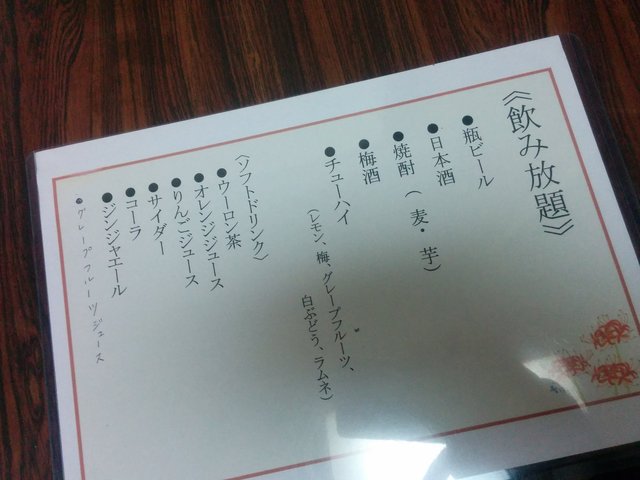 《飲み放題》
●瓶ビール
●日本酒
●焼酎（麦・芋）
●梅酒
●チューハイ
（レモン、梅、グレープフルーツ、
白ぶどう、ラムネ）
〈ソフトドリンク〉
●ウーロン茶
●オレンジジュース
●りんごジュース
●サイダー
●コーラ
●ジンジャエール
●グレープフルーツジュース